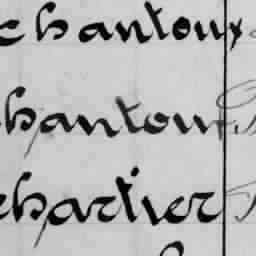 chantoux
hantour
chartier